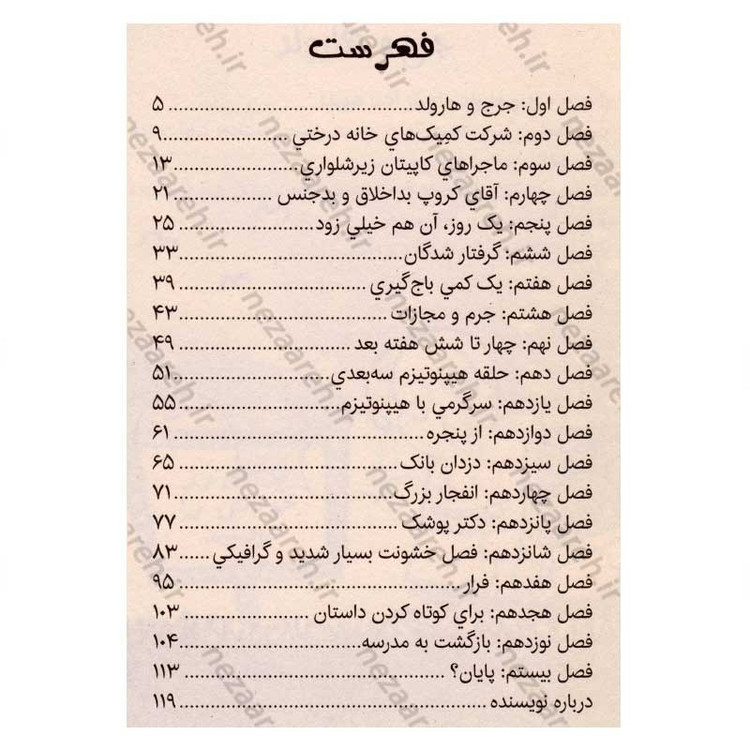 فهرست
فصل اول: جرج و هارولد ........................................ ۵
فصل دوم: شرکت کمیک‌هاي خانه درختي ..................... ۹
فصل سوم: ماجراهاي کاپیتان زیرشلواري ..................... ۱۳
فصل چهارم: آقاي کروپ بداخلاق و بدجنس ................ ۲۱
فصل پنجم: یک روز، آن هم خیلي زود ....................... ۲۵
فصل ششم: گرفتار شدگان ..................................... ۳۳
فصل هفتم: یک کمي باج‌گیري ............................... ۳۹
فصل هشتم: جرم و مجازات .................................. ۴۳
فصل نهم: چهار تا شش هفته بعد ............................ ۴۹
فصل دهم: حلقه هیپنوتیزم سه‌بعدي .......................... ۵۱
فصل یازدهم: سرگرمي با هیپنوتیزم .......................... ۵۵
فصل دوازدهم: از پنجره ......................................... ۶۱
فصل سیزدهم: دزدان بانک .................................... ۶۵
فصل چهاردهم: انفجار بزرگ .................................... ۷۱
فصل پانزدهم: دکتر پوشک .................................... ۷۷
فصل شانزدهم: فصل خشونت بسیار شدید و گرافیکي ...... ۸۳
فصل هفدهم: فرار ............................................... ۹۵
فصل هجدهم: براي کوتاه کردن داستان ..................... ۱۰۳
فصل نوزدهم: بازگشت به مدرسه .............................. ۱۰۴
فصل بیستم: پایان؟ ........................................... ۱۱۳
درباره نویسنده .................................................. ۱۱۹
nezaareh.ir